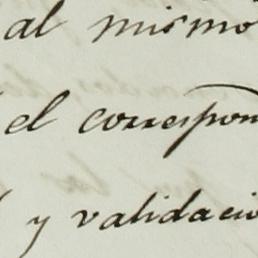 al mismo
el correspon
y validacio